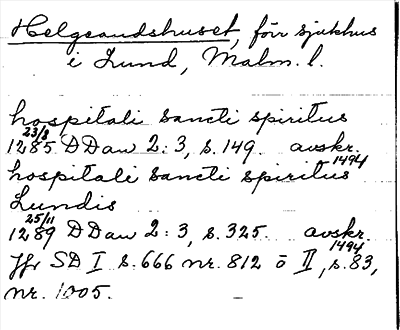 Helgeandshuset, förr sjukhus
i Lund, Malm. l.
hospitali sancti spiritus
1285 23/8 DDan 2:3, s. 149. avskr. 1494
hospitali sancti spiritus
Lundis
1289 25/11 DDan 2:3, s. 325. avskr. 1494
Jfr SD I s. 666 nr. 812 o II, s. 83,
nr. 1005.